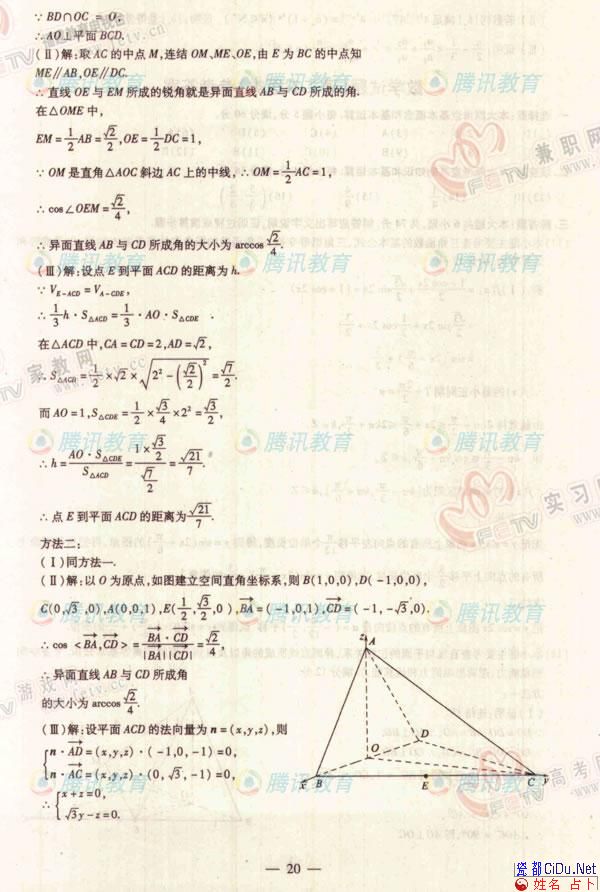 ∵ BD∩OC = O,
∴ AO⊥平面 BCD.
(Ⅱ)解:取 AC 的中点 M,连结 OM、ME、OE,由 E 为 BC 的中点知
ME∥AB,OE∥DC.
∴ 直线 OE 与 EM 所成的锐角就是异面直线 AB 与 CD 所成的角.
在△OME 中,
EM = 1/2 AB = √2/2, OE = 1/2 DC = 1,
∵ OM 是直角△AOC 斜边 AC 上的中线, ∴ OM = 1/2 AC = 1,
∴ cos∠OEM = √2/4,
∴ 异面直线 AB 与 CD 所成角的大小为 arccos √2/4.
(Ⅲ)解:设点 E 到平面 ACD 的距离为 h.
∵ V_{E-ACD} = V_{A-CDE},
∴ 1/3 h·S_{△ACD} = 1/3·AO·S_{△CDE}.
在△ACD 中,CA = CD = 2,AD = √2,
∴ S_{△ACD} = 1/2 × √2 × √(2² - (√2/2)²) = √7/2.
而 AO = 1,S_{△CDE} = 1/2 × √3/4 × 2² = √3/2,
∴ h = AO·S_{△CDE}/S_{△ACD} = (1×√3/2)/(√7/2) = √21/7.
∴ 点 E 到平面 ACD 的距离为 √21/7.
方法二:
(Ⅰ)同方法一.
(Ⅱ)解:以 O 为原点,如图建立空间直角坐标系,则 B(1,0,0),D(-1,0,0),
C(0,√3,0),A(0,0,1),E(1/2,√3/2,0),BA→ = (-1,0,1),CD→ = (-1,-√3,0).
∴ cos <BA→,CD→> = BA→·CD→/|BA→||CD→| = √2/4,
∴ 异面直线 AB 与 CD 所成角
的大小为 arccos √2/4.
(Ⅲ)解:设平面 ACD 的法向量为 n = (x,y,z),则
{ n·AD→ = (x,y,z)·(-1,0,-1) = 0,
n·AC→ = (x,y,z)·(0,√3,-1) = 0,
∴ { x+z=0,
√3y-z=0.
z A
O
D
x B
E
C y
— 20 —
腾讯教育
腾讯教育
腾讯教育
腾讯教育
腾讯教育
腾讯教育
腾讯教育
腾讯教育
腾讯教育
FETV 兼职网
家教网
FETV 实习网
游戏网
FETV 高考网
瓷都CiDu.Net
姓名 占卜